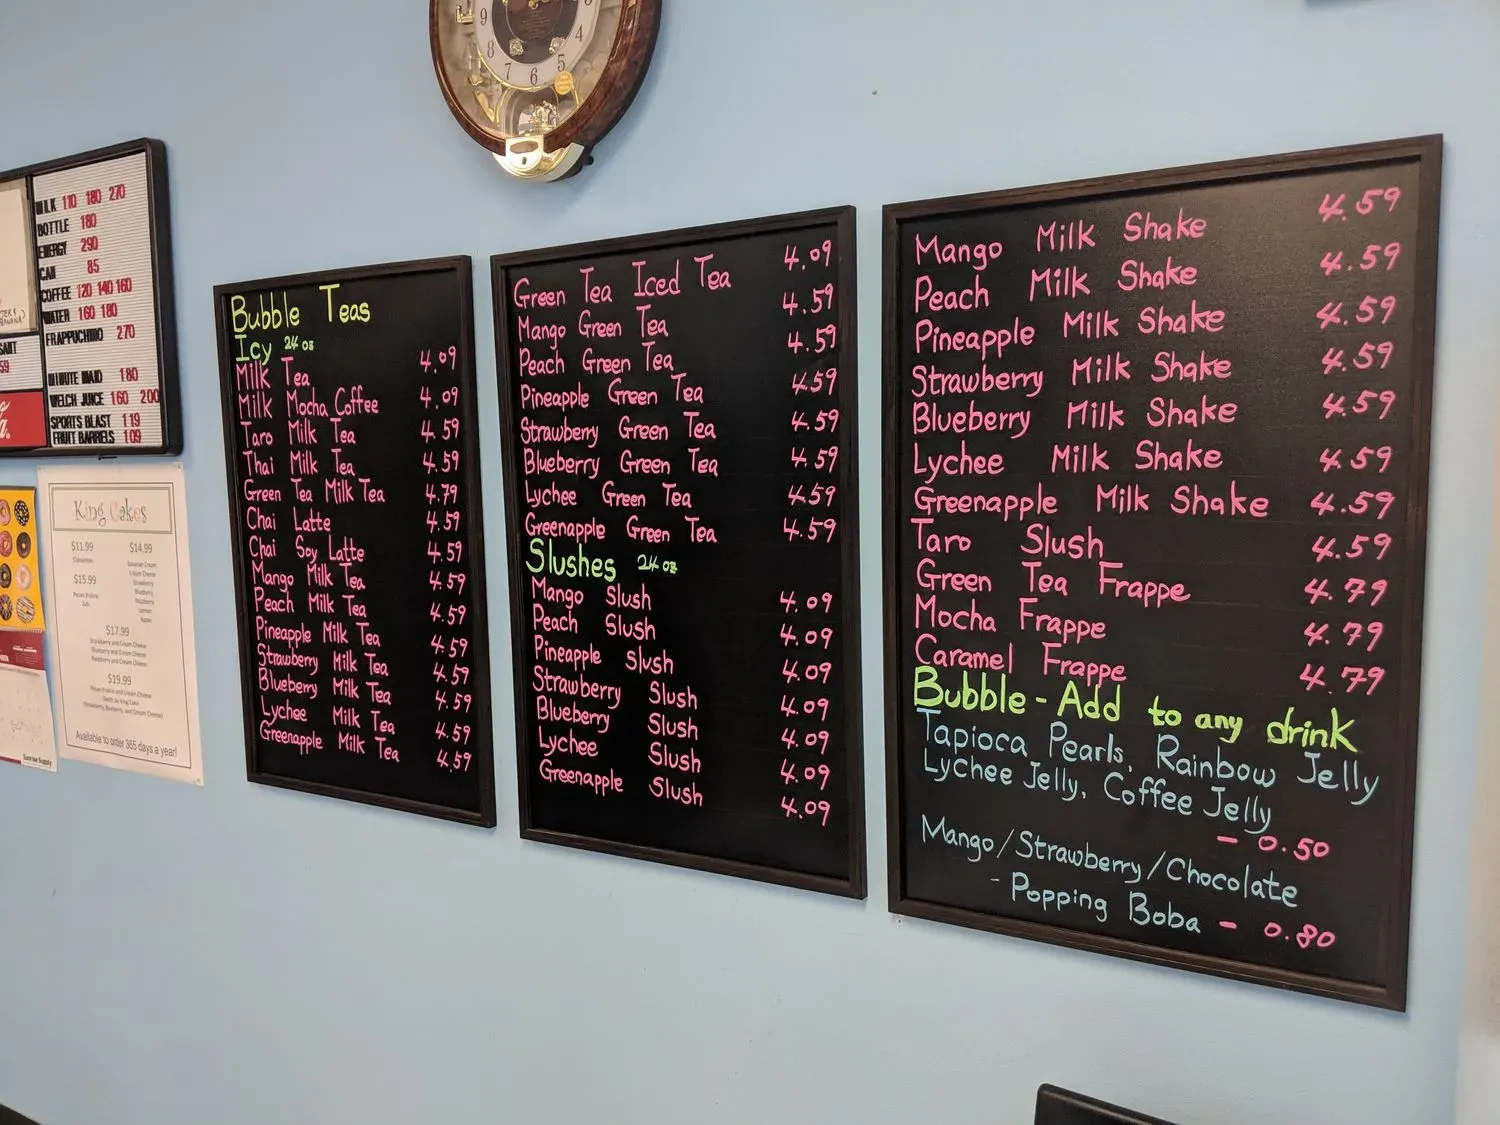 9
8
7
6
5
4
MILK 110 180 270
BOTTLE 180
ENERGY 290
CAN 85
COFFEE 120 140 160
WATER 160 180
FRAPPUCHINO 270
MINUTE MAID 180
WELCH JUICE 160 200
SPORTS BLAST 119
FRUIT BARRELS 109
King Cakes
$11.99
Cinnamon
$14.99
Bavarian Cream
Cream Cheese
Strawberry
Blueberry
Raspberry
Lemon
Apple
$15.99
Pecan Praline
$17.99
Strawberry and Cream Cheese
Blueberry and Cream Cheese
Raspberry and Cream Cheese
$19.99
Pecan Praline and Cream Cheese
(Strawberry, Blueberry, and Cream Cheese)
Available to order 365 days a year!
Sunrise Supply
Bubble Teas
Icy 24 oz
Milk Tea 4.09
Milk Mocha Coffee 4.09
Taro Milk Tea 4.59
Thai Milk Tea 4.59
Green Tea Milk Tea 4.79
Chai Latte 4.59
Chai Soy Latte 4.59
Mango Milk Tea 4.59
Peach Milk Tea 4.59
Pineapple Milk Tea 4.59
Strawberry Milk Tea 4.59
Blueberry Milk Tea 4.59
Lychee Milk Tea 4.59
Greenapple Milk Tea 4.59
Green Tea Iced Tea 4.09
Mango Green Tea 4.59
Peach Green Tea 4.59
Pineapple Green Tea 4.59
Strawberry Green Tea 4.59
Blueberry Green Tea 4.59
Lychee Green Tea 4.59
Greenapple Green Tea 4.59
Slushes 24 oz
Mango Slush 4.09
Peach Slush 4.09
Pineapple Slush 4.09
Strawberry Slush 4.09
Blueberry Slush 4.09
Lychee Slush 4.09
Greenapple Slush 4.09
Mango Milk Shake 4.59
Peach Milk Shake 4.59
Pineapple Milk Shake 4.59
Strawberry Milk Shake 4.59
Blueberry Milk Shake 4.59
Lychee Milk Shake 4.59
Greenapple Milk Shake 4.59
Taro Slush 4.59
Green Tea Frappe 4.79
Mocha Frappe 4.79
Caramel Frappe 4.79
Bubble - Add to any drink
Tapioca Pearls, Rainbow Jelly
Lychee Jelly, Coffee Jelly
- 0.50
Mango/Strawberry/Chocolate
- Popping Boba - 0.80